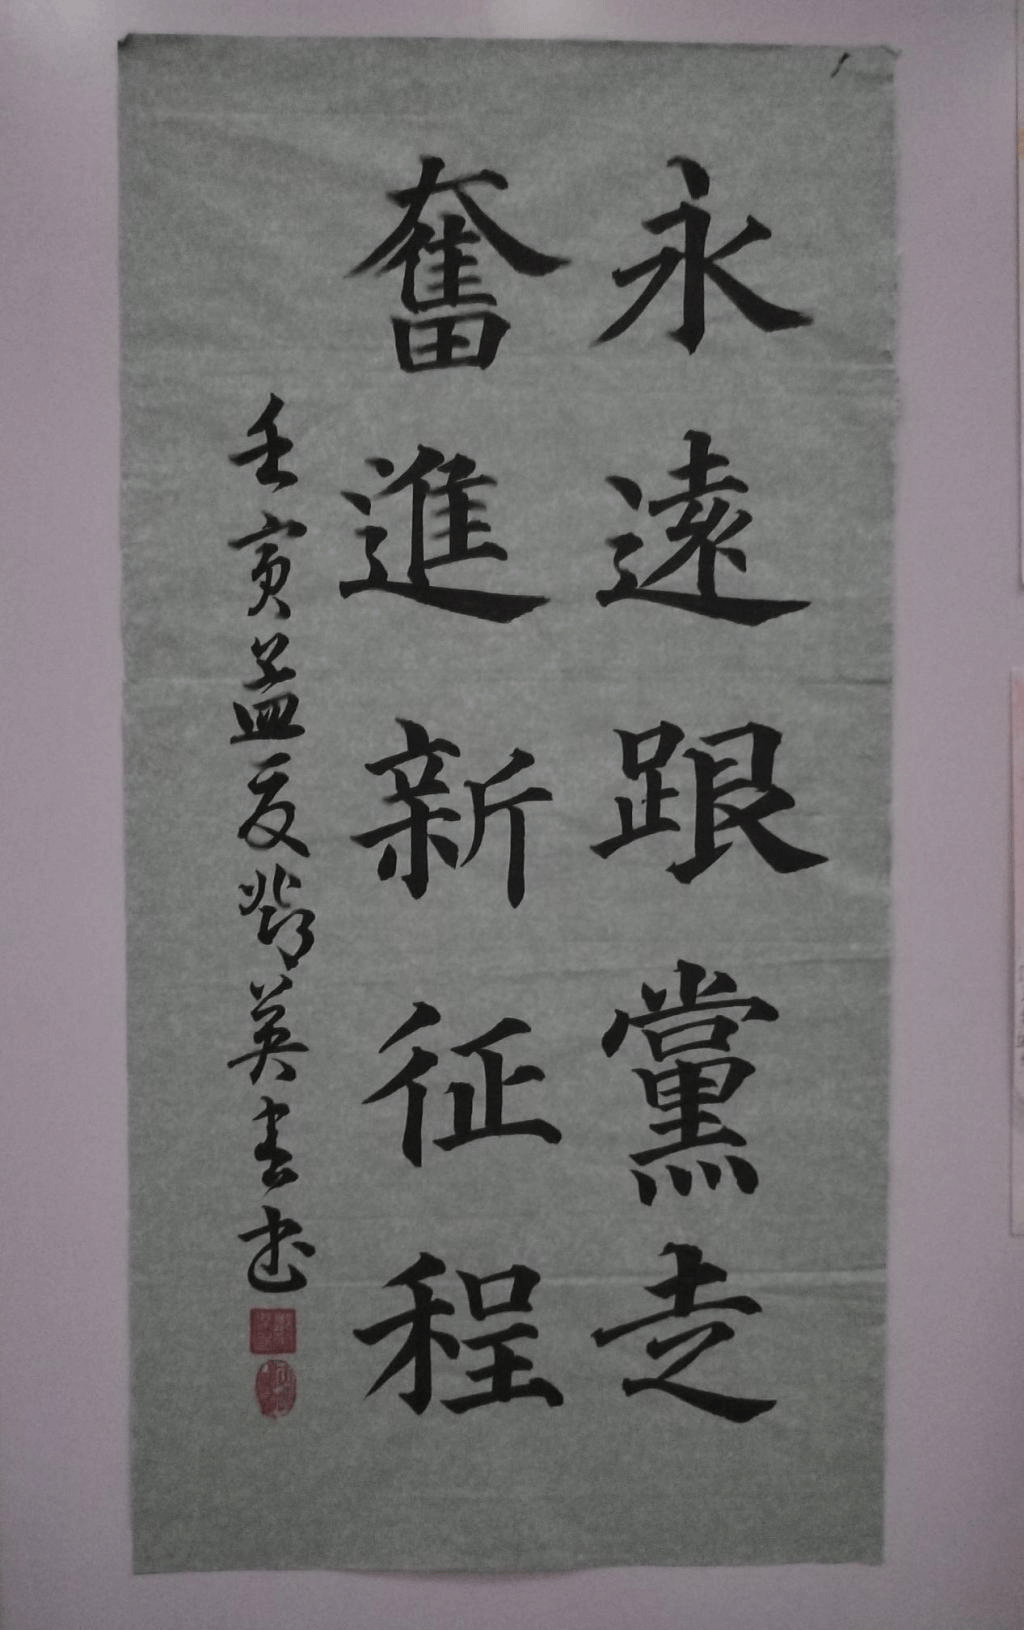 永遠跟黨走
奮進新征程
壬寅孟夏 英书